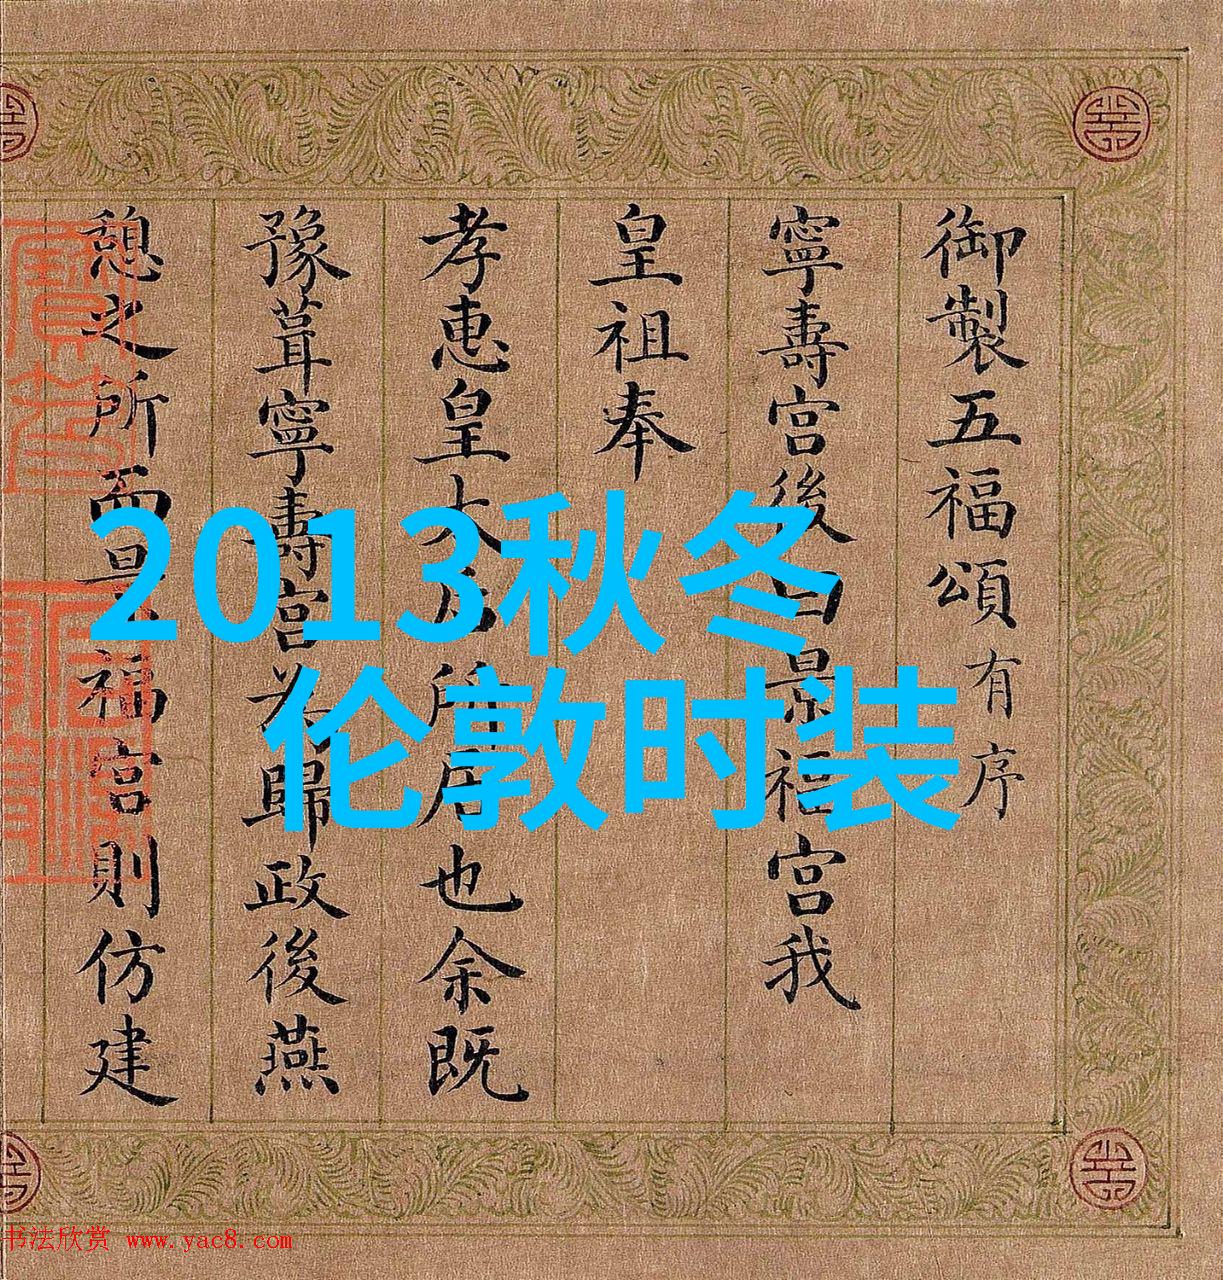 御製五福頌有序
寧壽宫後曰景福宫我
皇祖奉
孝惠皇太后所居也余既
豫葺寧壽宫為歸政後燕
憩之所而景福宫則仿建
2013秋冬
伦敦时装
书法欣赏 www.yac8.com